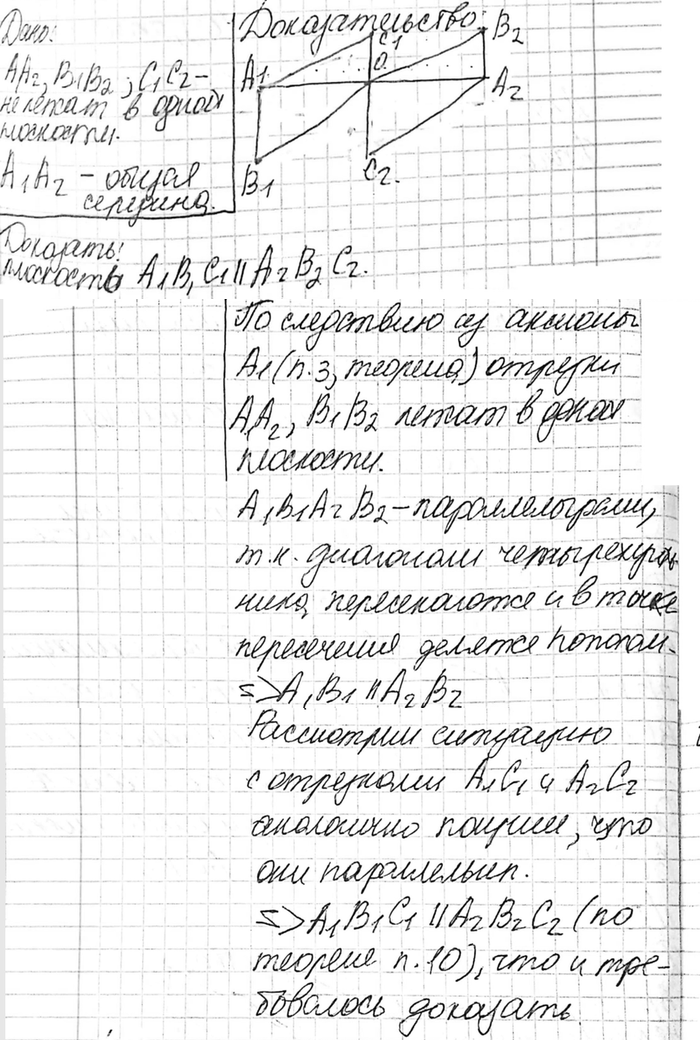 Дано:
АА₂, В₁В₂, С₁С₂ –
не лежат в одной
плоскости.
А₁А₂ – общая
середина.
Доказательство:
С1
В2
А1
О
А2
В1
С2.
Доказать!
плоскость А₁В₁С₁ || А₂В₂С₂.
По следствию из аксиомы
А1 (п.3, теорема) отрезки
А₁А₂, В₁В₂ лежат в одной
плоскости.
А₁В₁А₂В₂ – параллелограмм,
т.к. диагонали четырехуголь-
ника пересекаются и в точке
пересечения делятся пополам.
=> А₁В₁ || А₂В₂
Рассмотрим ситуацию
с отрезками А₁С₁ и А₂С₂
аналогично получим, что
они параллельны.
=> А₁В₁С₁ || А₂В₂С₂ (по
теореме п.10), что и тре-
бовалось доказать.